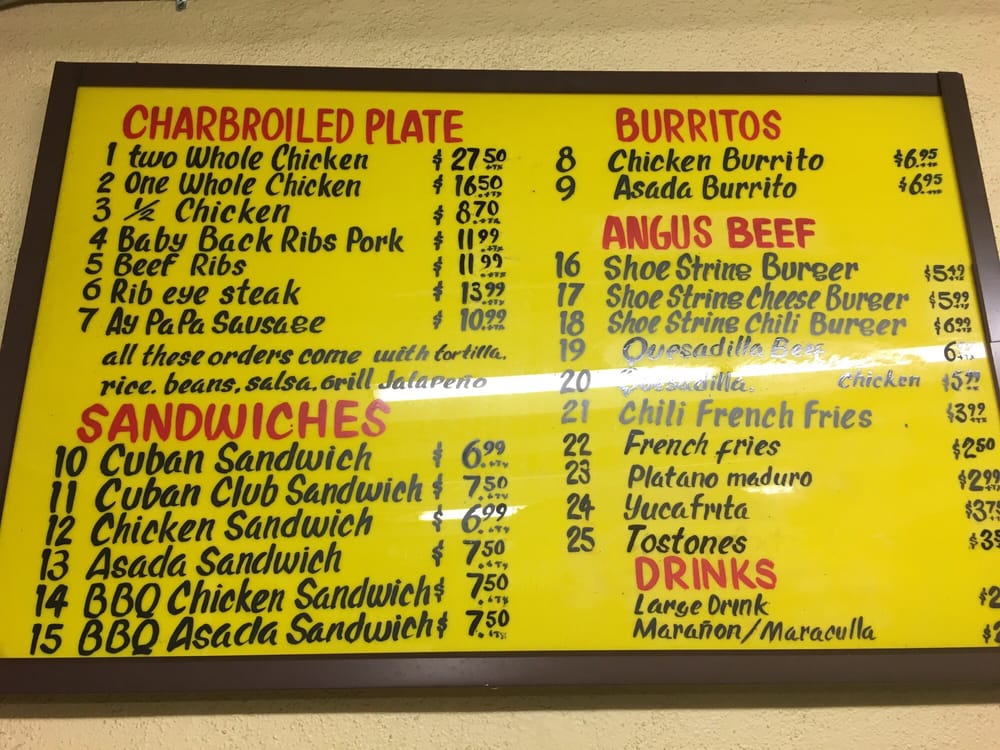 CHARBROILED PLATE
1 two Whole Chicken $ 27.50 +TX
2 One Whole Chicken $ 16.50 +TX
3 ½ Chicken $ 8.70 +TX
4 Baby Back Ribs Pork $ 11.99 +TX
5 Beef Ribs $ 11.99 +TX
6 Rib eye steak $ 13.99 +TX
7 Ay PaPa Sausage $ 10.99 +TX
all these orders come with tortilla.
rice. beans, salsa, Grill Jalapeño
SANDWICHES
10 Cuban Sandwich $ 6.99 +TX
11 Cuban Club Sandwich $ 7.50 +TX
12 Chicken Sandwich $ 6.99 +TX
13 Asada Sandwich $ 7.50 +TX
14 BBQ Chicken Sandwich $ 7.50 +TX
15 BBQ Asada Sandwich $ 7.50 +TX
BURRITOS
8 Chicken Burrito $6.95 +TX
9 Asada Burrito $6.95 +TX
ANGUS BEEF
16 Shoe String Burger $5.49 +TX
17 Shoe String Cheese Burger $5.99 +TX
18 Shoe String Chili Burger $6.99 +TX
19 Quesadilla Beef
20 Quesadilla. Chicken
21 Chili French Fries $3.99
22 French fries $2.50
23 Platano maduro
24 Yuca frita
25 Tostones
DRINKS
Large Drink
Marañon/Maraculla